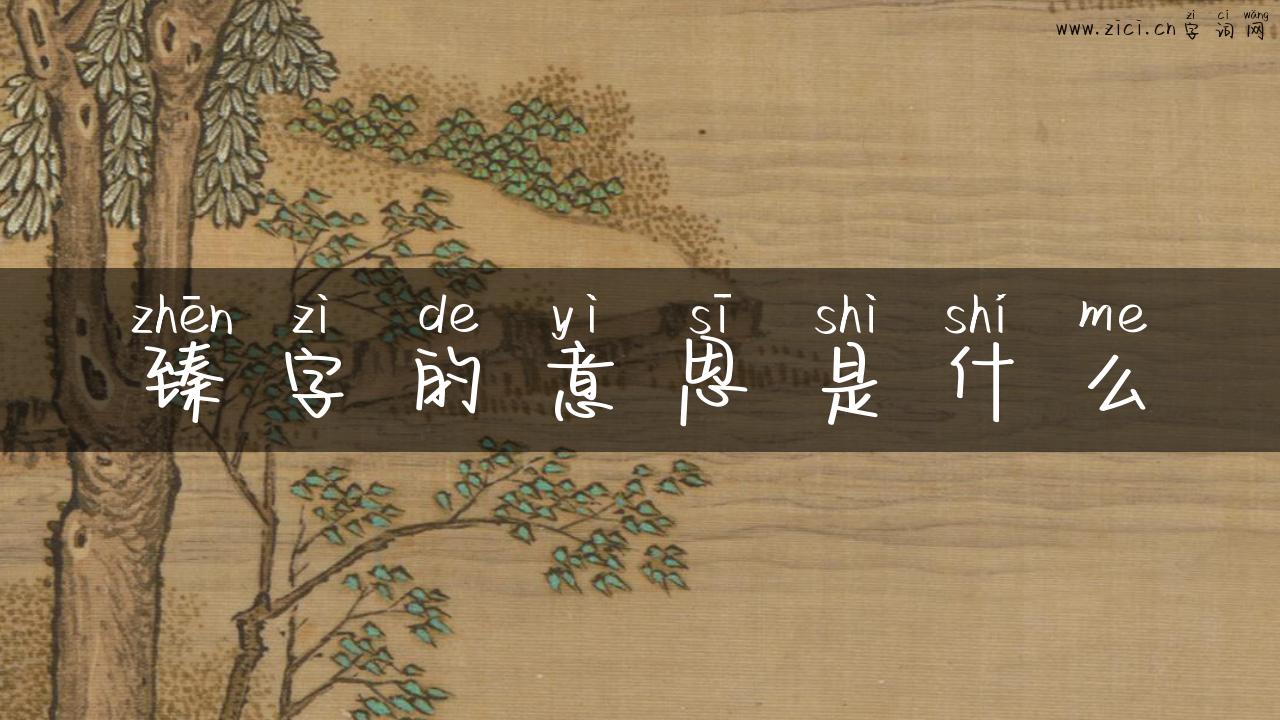 zì cí wǎng
www.zici.cn 字词网
zhēn zì de yì sī shì shí me
臻字的意思是什么